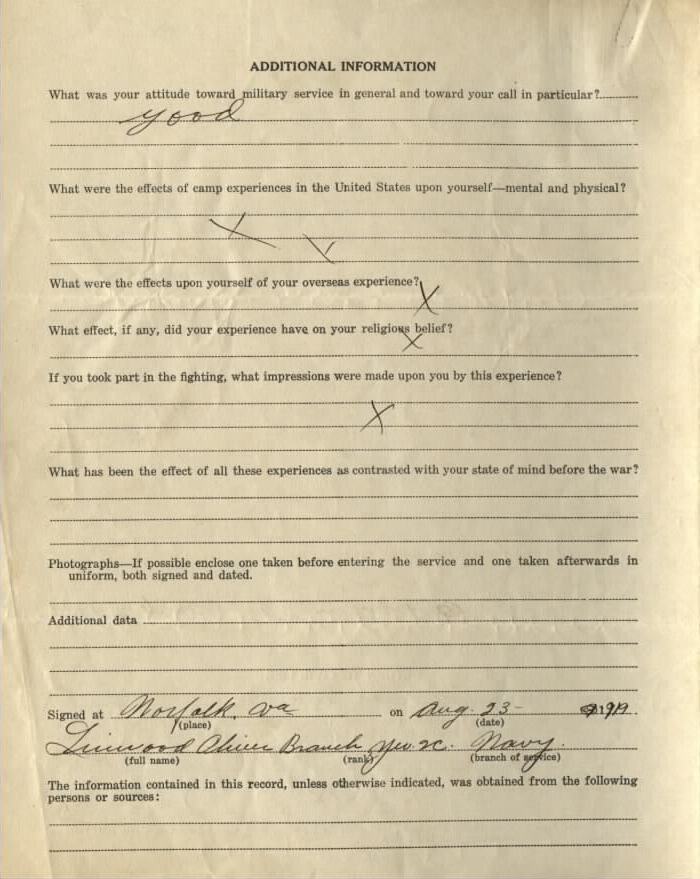 ADDITIONAL INFORMATION
What was your attitude toward military service in general and toward your call in particular?
good
What were the effects of camp experiences in the United States upon yourself—mental and physical?
X
X
What were the effects upon yourself of your overseas experience?
X
What effect, if any, did your experience have on your religious belief?
X
If you took part in the fighting, what impressions were made upon you by this experience?
X
What has been the effect of all these experiences as contrasted with your state of mind before the war?
Photographs—If possible enclose one taken before entering the service and one taken afterwards in
uniform, both signed and dated.
Additional data
Signed at Norfolk, Va on Aug. 23- 1919
(place) (date)
Linwood Oliver Branch Yeo. 2c. Navy.
(full name) (rank) (branch of service)
The information contained in this record, unless otherwise indicated, was obtained from the following
persons or sources: